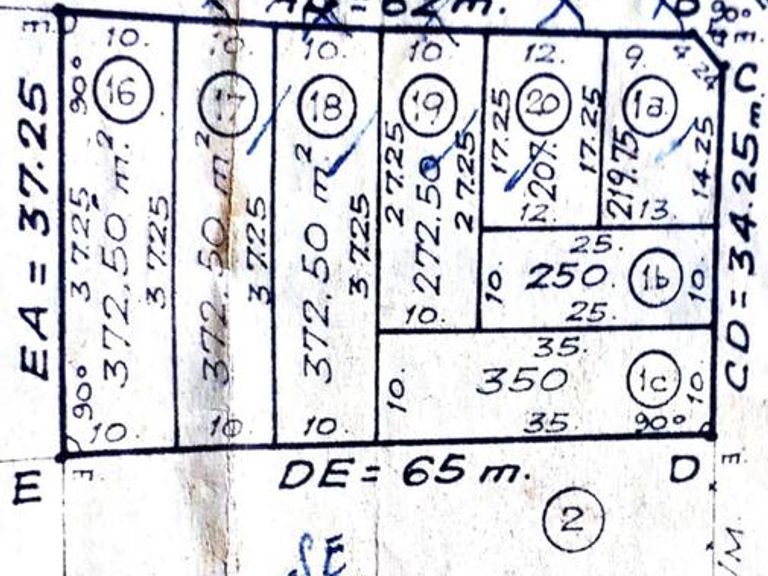 = 62 m.
EA = 37.25
CD = 34.25 m.
DE = 65 m.
E
D
C
10. 10. 10. 10. 12. 9.
16 17 18 19 20 1a
90°
37.25 372.50 m.² 37.25
372.50 m² 37.25
372.50 m² 37.25
27.25 272.50 27.25
17.25 207. 17.25
219.75 14.25
12. 13.
25.
10. 250. 1b 10.
10. 25.
35.
10. 350 1c 10.
90° 10. 10. 10. 35. 90°
2
SE